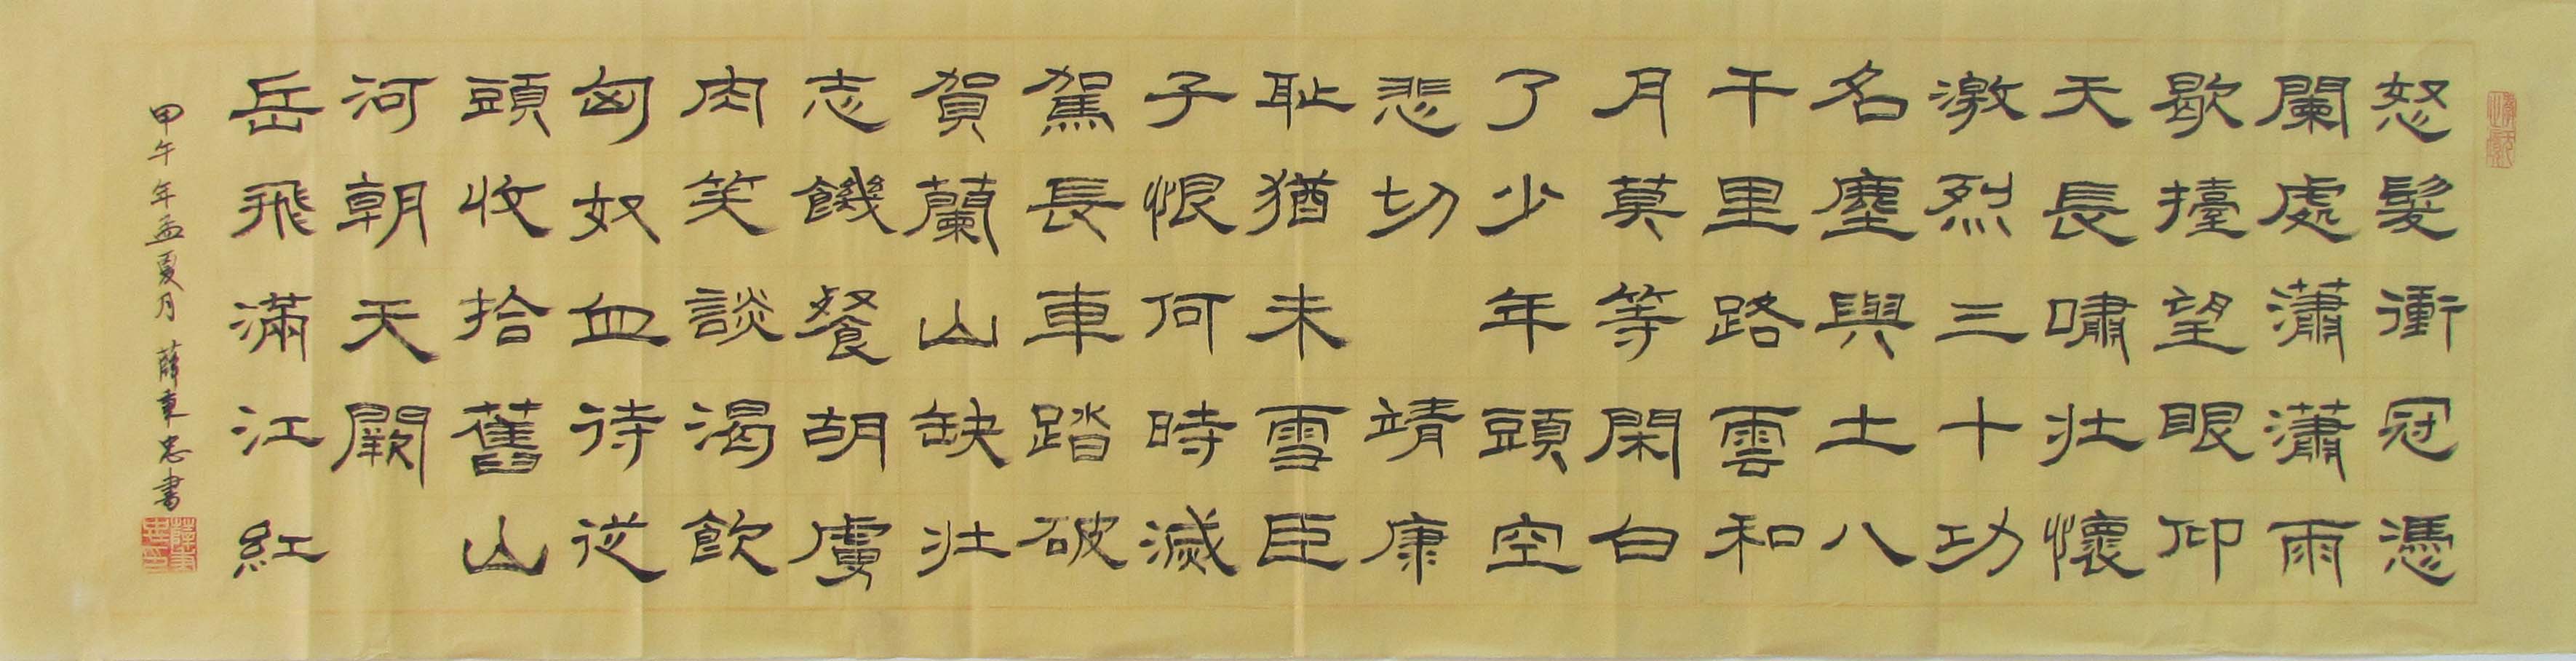 怒髮衝冠憑
闌處瀟瀟雨
歇擡望眼仰
天長嘯壯懷
激烈三十功
名塵與土八
千里路雲和
月莫等閑白
了少年頭空
悲切 靖康
耻猶未雪臣
子恨何時滅
駕長車踏破
賀蘭山缺壯
志饑餐胡虜
肉笑談渴飲
匈奴血待從
頭收拾舊山
河朝天闕
岳飛滿江紅
甲午年孟夏月 薛東忠書